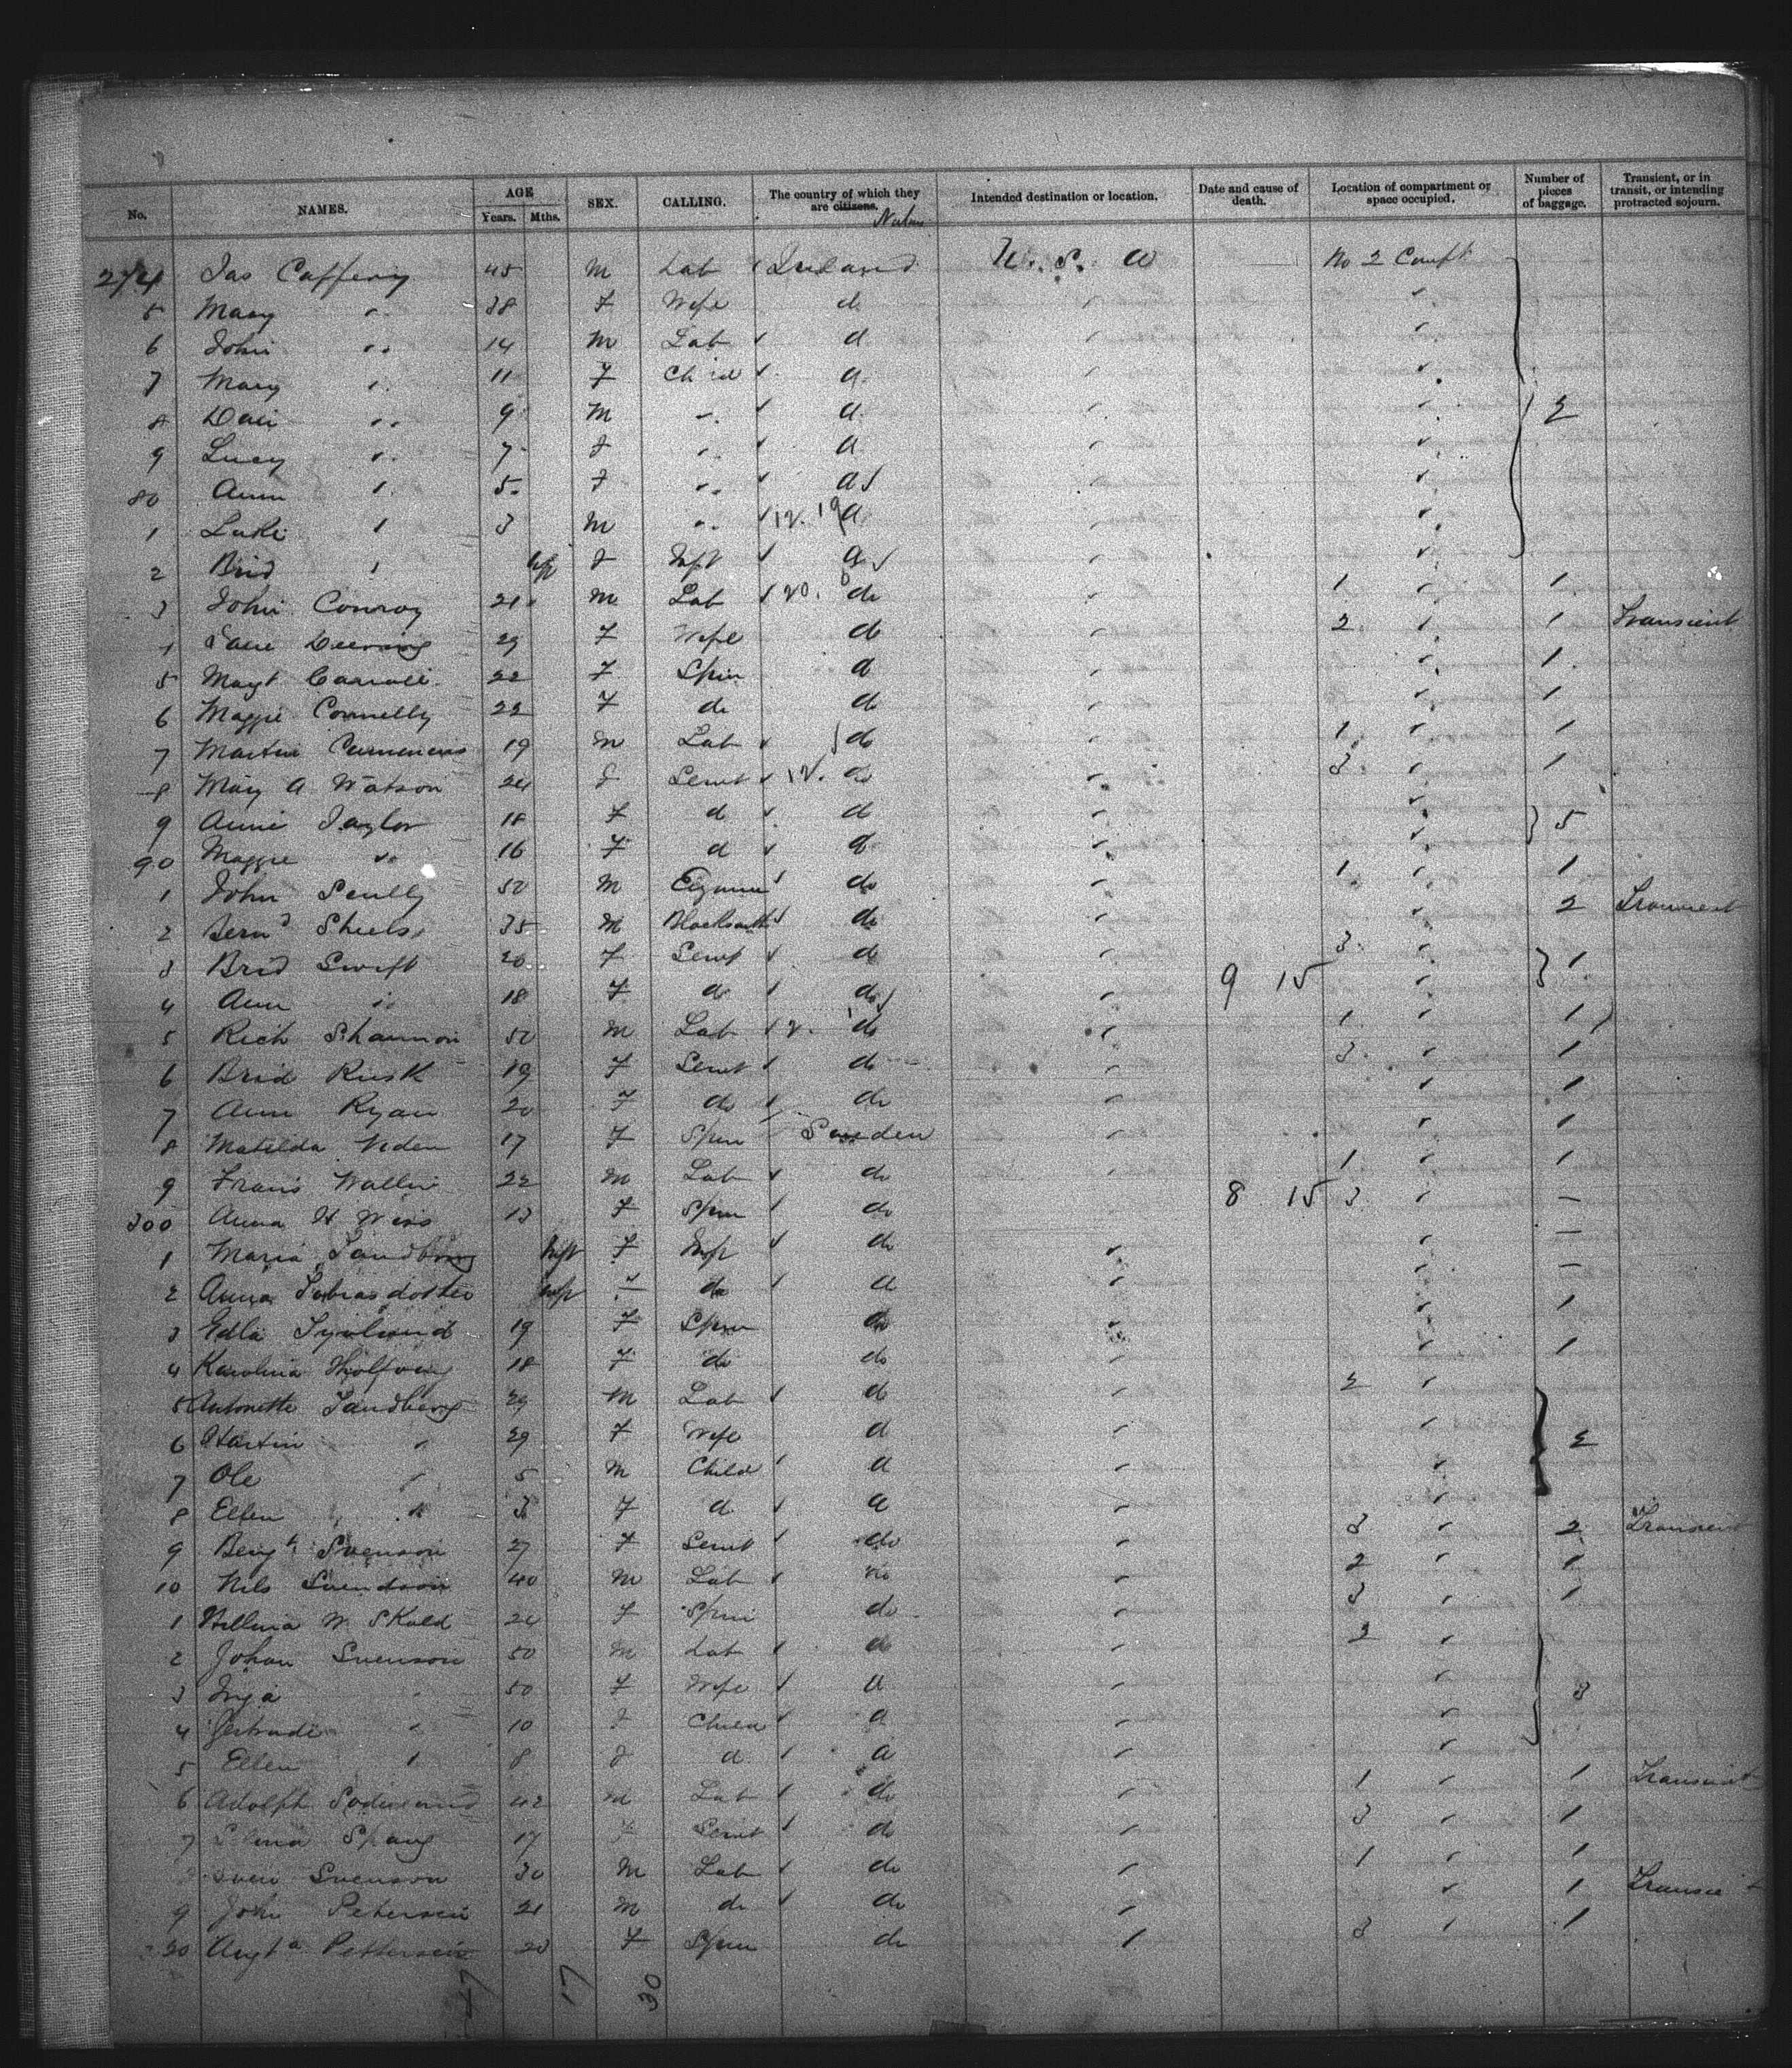 No. NAMES. AGE Years. Mths. SEX. CALLING. The country of which they are citizens. Intended destination or location. Date and cause of death. Location of compartment or space occupied. Number of pieces of baggage. Transient, or in transit, or intending protracted sojourn.
274 Jas Caffery 45 M Lab Ireland U. S. A No 2 Compt
5 Mary " 38 F Wife d
6 John " 14 M Lab d
7 Mary " 11 F Child d
8 " 9 M " d 2
9 Lucy " 7 F " d
80 Ann " 5 F " d
1 Luke " 3 M " 12. 19 d
2 Brid " Inf F Inft d
3 John Conroy 21 M Lab 20. do 1 1
4 29 F Wife do 2 1 Transient
5 Magt 22 F Spin d 1
6 Maggie Connelly 22 F do do 1
7 Martin 19 M Lab do 1 1
8 Mary A Watson 24 F Servt 12. do 3 1
9 Annie Taylor 18 F d d 5
90 Maggie " 16 F d d
1 John Scully 50 M do 1 1
2 Bernd 35 M Blacksmith do 2 Transient
3 Brid Swift 20 F Servt do 3 1
4 Ann " 18 F do do 9 15
5 Rich Shannon 50 M Lab 2. do 1 1
6 Brid Rusk 19 F Servt do 3 1
7 Ann Ryan 20 F do do 1
8 Matilda 17 F Spin Sweden 1
9 Frans Wallin 22 M Lab do 1 1
300 Anna H 13 F Spin do 8 15 3 —
1 Maria Sandberg Inft F Inf do —
2 Anna Inf F do d —
3 Edla 19 F Spin do 1
4 Karolina 18 F do do 1
5 Antonette Sandberg 29 M Lab do 2
6 " 29 F Wife d 2
7 Ole " 5 M Child d
8 Ellen " 3 F d d
9 Bengt Svenson 27 F Servt do 3 2 Transient
10 Nils 40 M Lab do 2 1
1 W Skold 24 F Spin do 3 1
2 Johan Svenson 50 M Lab do 2
3 Inga " 50 F Wife d 3
4 Gertrude " 10 F Child d
5 Ellen " 8 F d d
6 Adolph 42 M Lab do 1 1 Transient
7 Spang 17 F Servt do 3 1
Sven Svenson 30 M Lab do 1 1
9 John Peterson 21 M do do 1 Transient
20 Augta 20 F Spin do 3 1
47 17 30